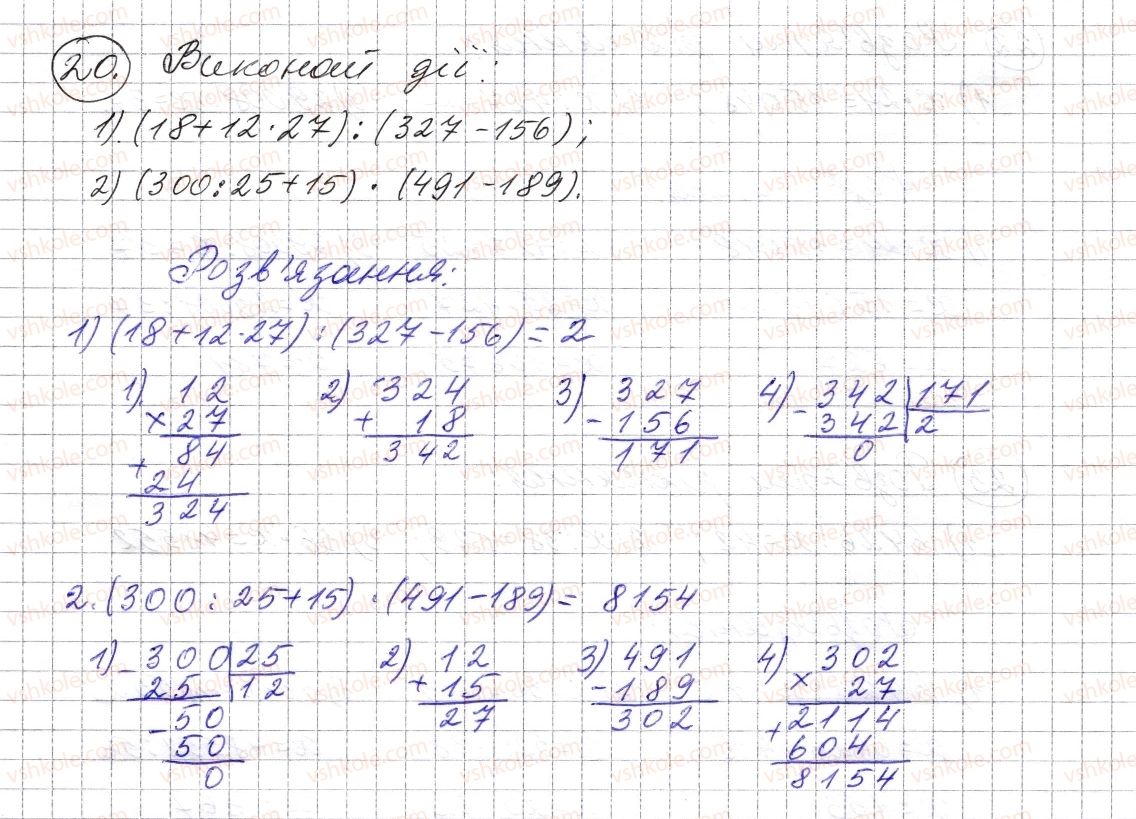 20. Виконай дії:
1). (18+12·27) : (327-156);
2) (300:25+15) · (491-189).
Розв'язання:
1) (18+12·27) : (327-156) = 2
1) 12 2) 324 3) 327 4) - 342 | 171
× 27 + 18 - 156 342 | 2
84 342 171 0
+ 24
324
2. (300 : 25+15) · (491-189) = 8154
1) - 300 | 25 2) 12 3) 491 4) 302
25 | 12 + 15 - 189 × 27
- 50 27 302 2114
50 + 604
0 8154